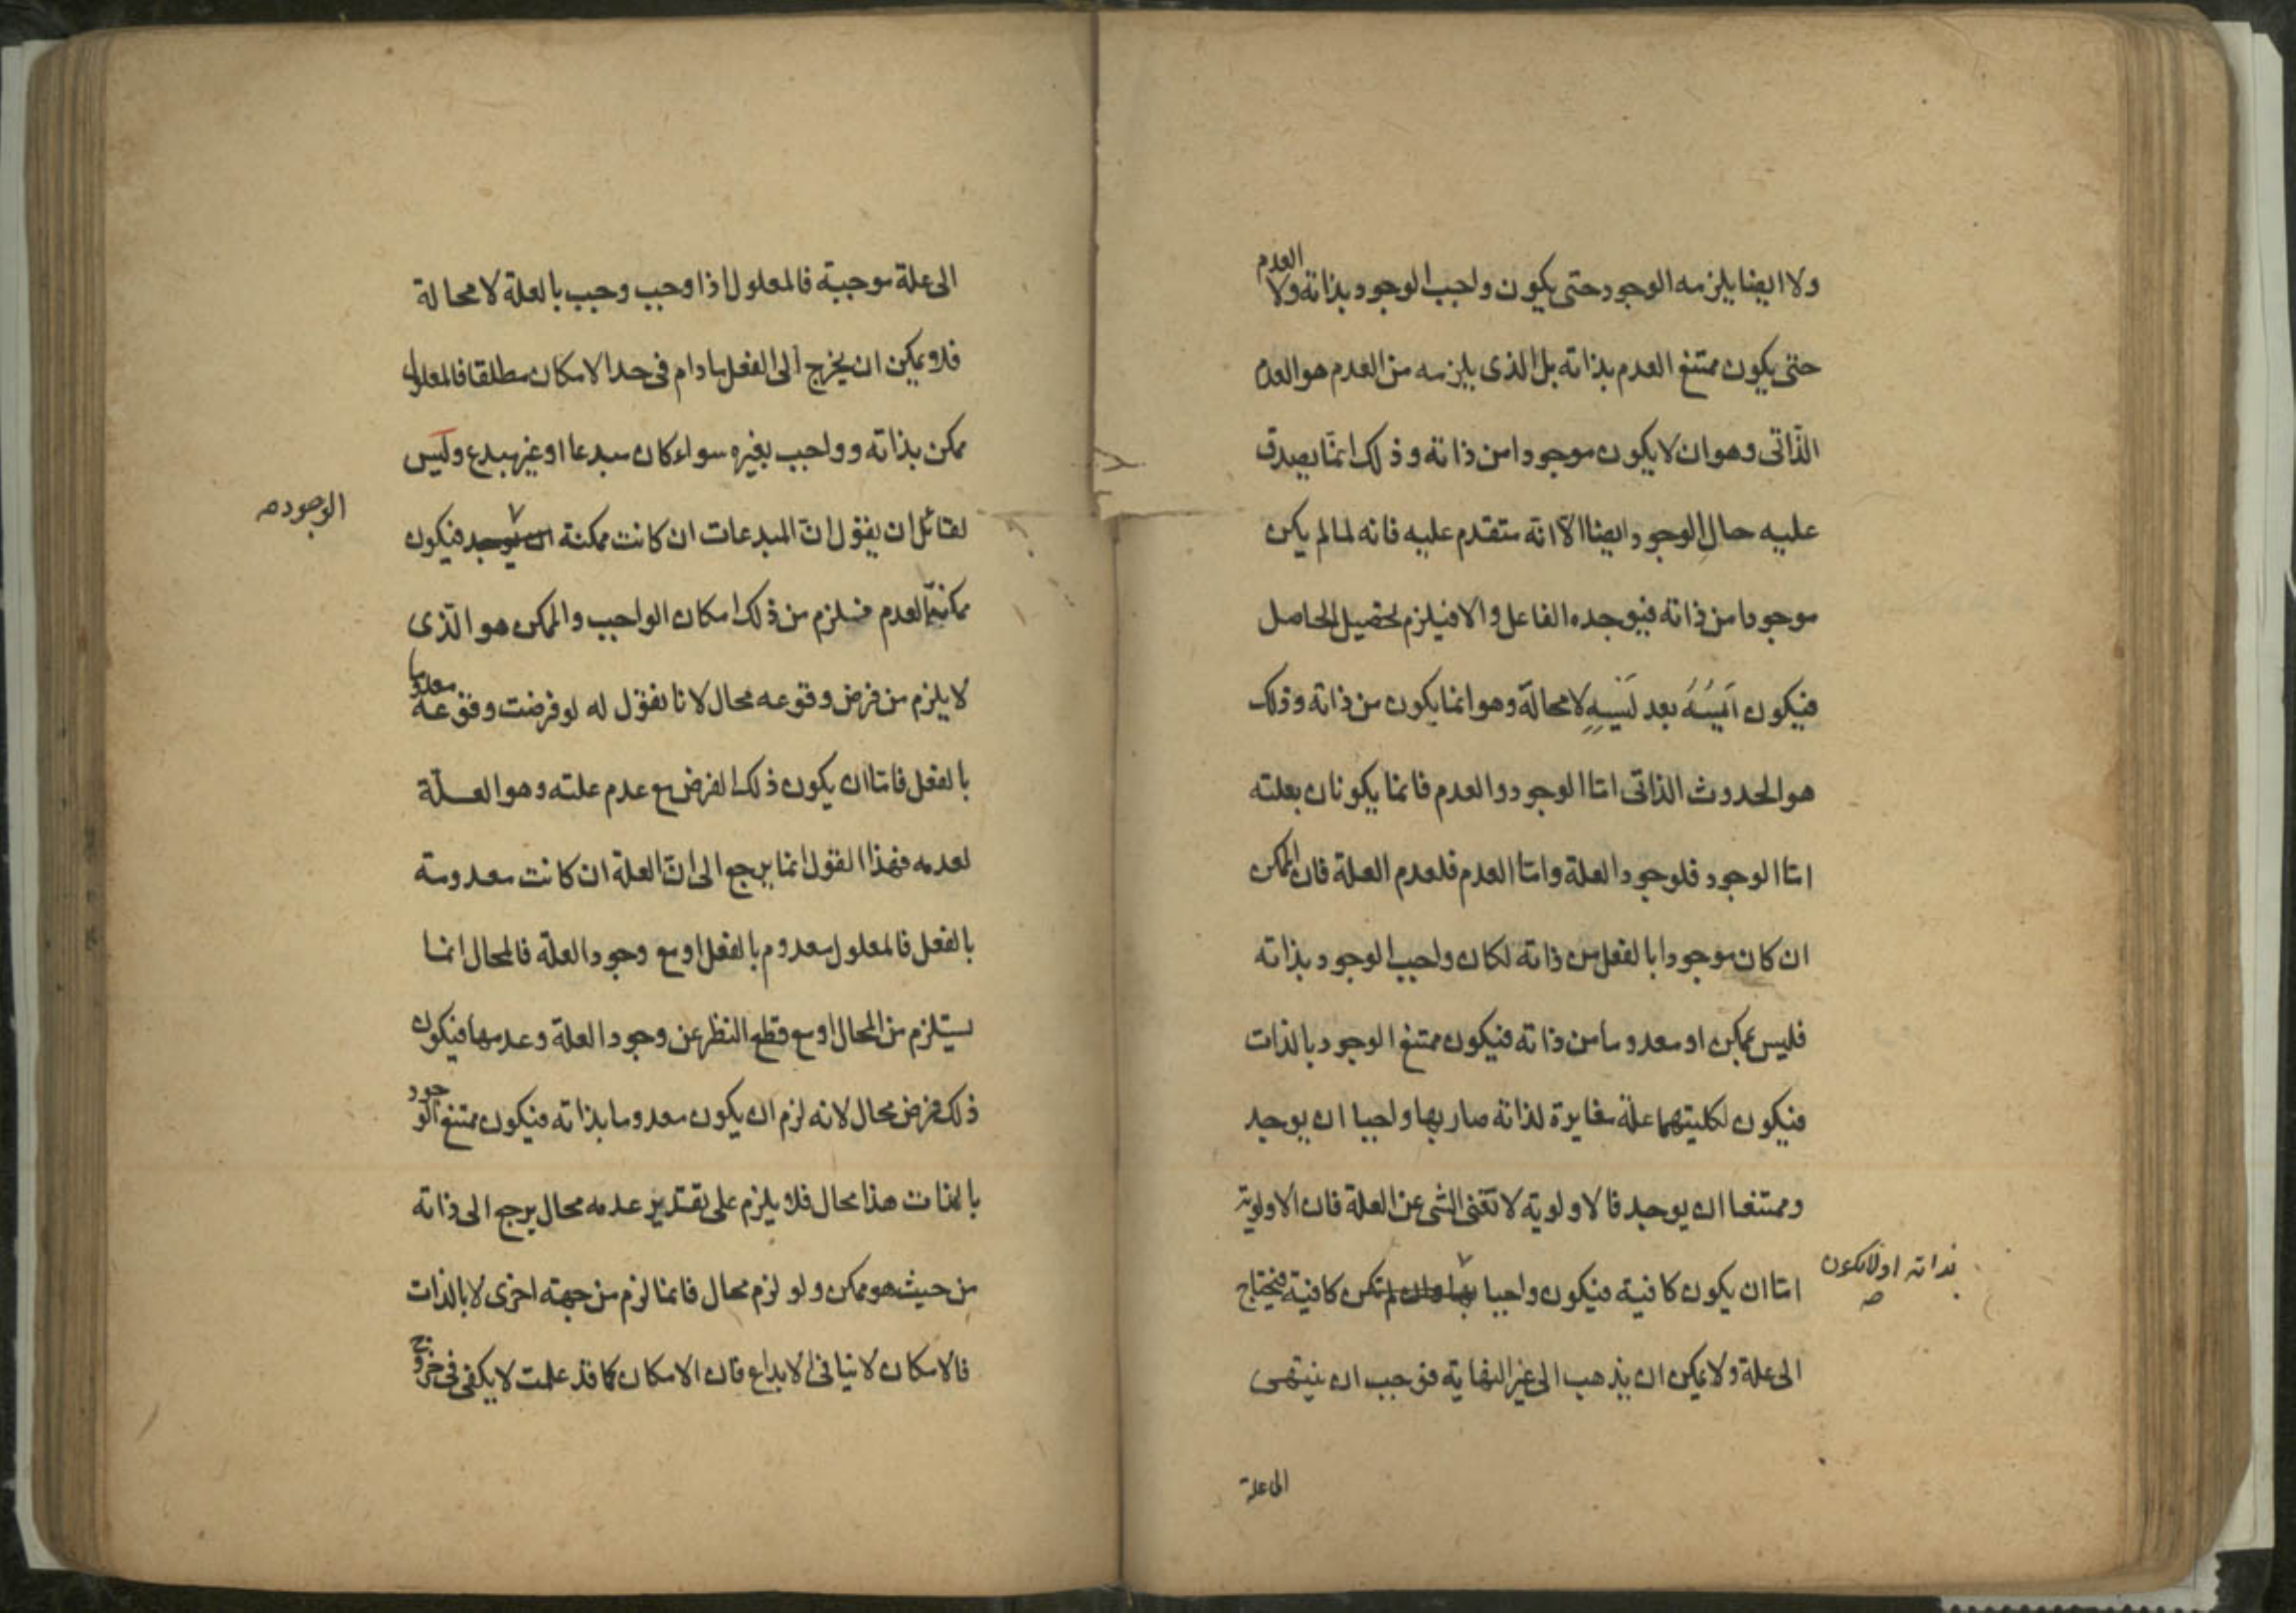 ولا ايضا يلزمه الوجود حتى يكون واجب الوجود بذاته ولا العدم
حتى يكون ممتنع العدم بذاته بل الذى يلزمه من العدم هو العدم
الذّاتى وهو ان لا يكون موجودا من ذاته وذلك انمّا يصدق
عليه حال الوجود ايضا الّا انه متقدم عليه فانه لما لم يكن
موجودا من ذاته فيوجده الفاعل والا فيلزم تحصيل الحاصل
فيكون اَيسُهُ بعد لَيسِهِ لا محالة وهو انما يكون من ذاته وذلك
هو الحدوث الذاتى امّا الوجود والعدم فانما يكونان بعلته
امّا الوجود فلوجود العلة وامّا العدم فلعدم العلة فان الممكن
ان كان موجودا بالفعل من ذاته لكان واجب الوجود بذاته
فليس بممكن او معدوما من ذاته فيكون ممتنع الوجود بالذات
فيكون لكليتهما علّة مغايرة لذاته صار بها واجبا ان يوجد
وممتنعا ان يوجد فالاولوية لا تغنى الشى عن العلة فان الاولوية
امّا ان يكون كافية فيكون واجبا بها وان لم تكن كافية فيحتاج
بذاته او لا يكون
صح
الى علة ولا يمكن ان يذهب الى غير النهاية فوجب ان ينتهى
الى علة
الى علة موجبة فالمعلول اذا وجب وجب بالعلة لا محالة
فلا يمكن ان يخرج الى الفعل مادام فى حد الامكان مطلقا فالمعلول
ممكن بذاته وواجب بغيره سواء كان مبدعا او غير مبدع وليس
لقائل ان يقول انّ المبدعات ان كانت ممكنة ان يوجد فيكون
الوجود صح
ممكنة العدم فيلزم من ذلك امكان الواجب والممكن هو الّذى
لا يلزم من فرض وقوعه محال لانا نقول له لو فرضت وقوعه معدوما
بالفعل فامّا ان يكون ذلك الفرض مع عدم علته وهو العلّة
لعدمه فهذا القول انما يرجع الى انّ العلة ان كانت معدومة
بالفعل فالمعلول معدوم بالفعل او مع وجود العلة فالمحال انما
يستلزم من المحال او مع قطع النظر عن وجود العلة وعدمها فيكون
ذلك فرض محال لانه لزم ان يكون معدوما بذاته فيكون ممتنع الوجود
بالذات هذا محال فلا يلزم على تقدير عدمه محال يرجع الى ذاته
من حيث هو ممكن ولو لزم محال فانما لزم من جهة اخرى لا بالذات
فالامكان لا ينافى الابداع فان الامكان كما قد علمت لا يكفى فى خروج